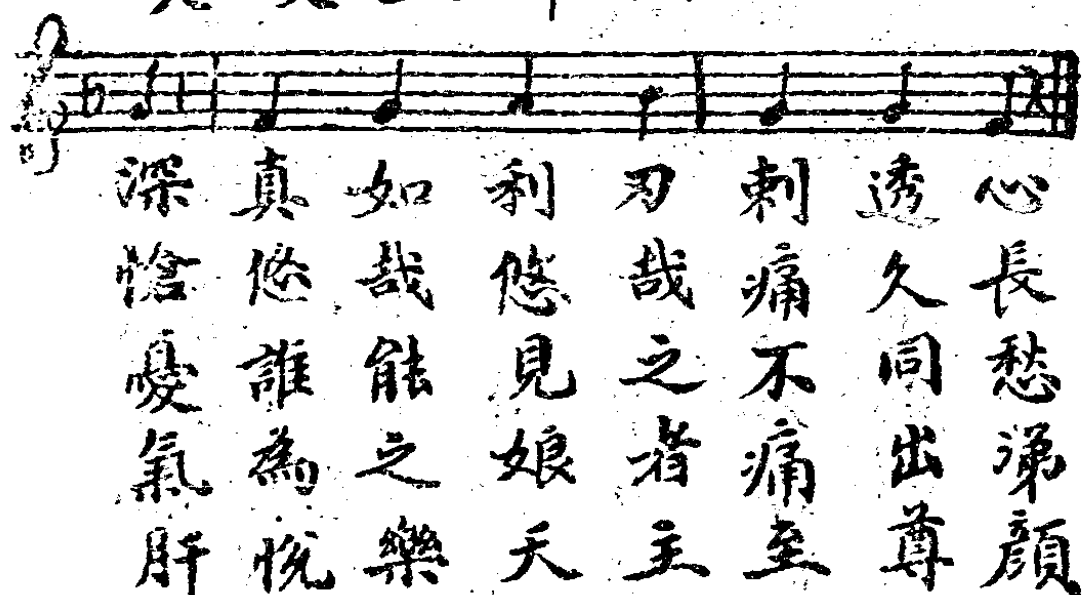 深真如利刃刺透心
愴悠哉悠哉痛久長
憂誰能見之不同愁
氣為之娘者痛出涕
肝悅樂天主至尊顏